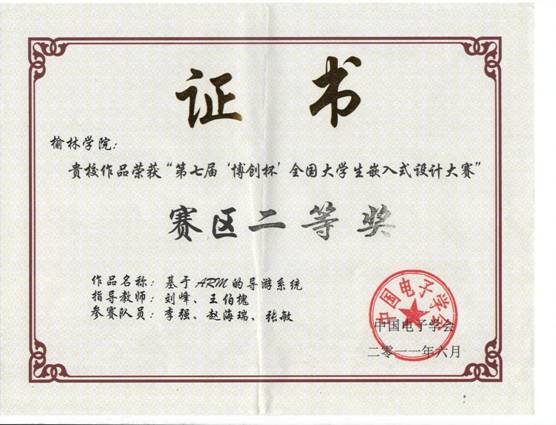 证书
榆林学院：
贵校作品荣获“第七届‘博创杯’全国大学生嵌入式设计大赛”
赛区二等奖
作品名称：基于ARM的导游系统
指导教师：刘峰、王伯槐
参赛队员：李强、赵海瑞、张敏
中国电子学会
中国电子学会
二零一一年六月